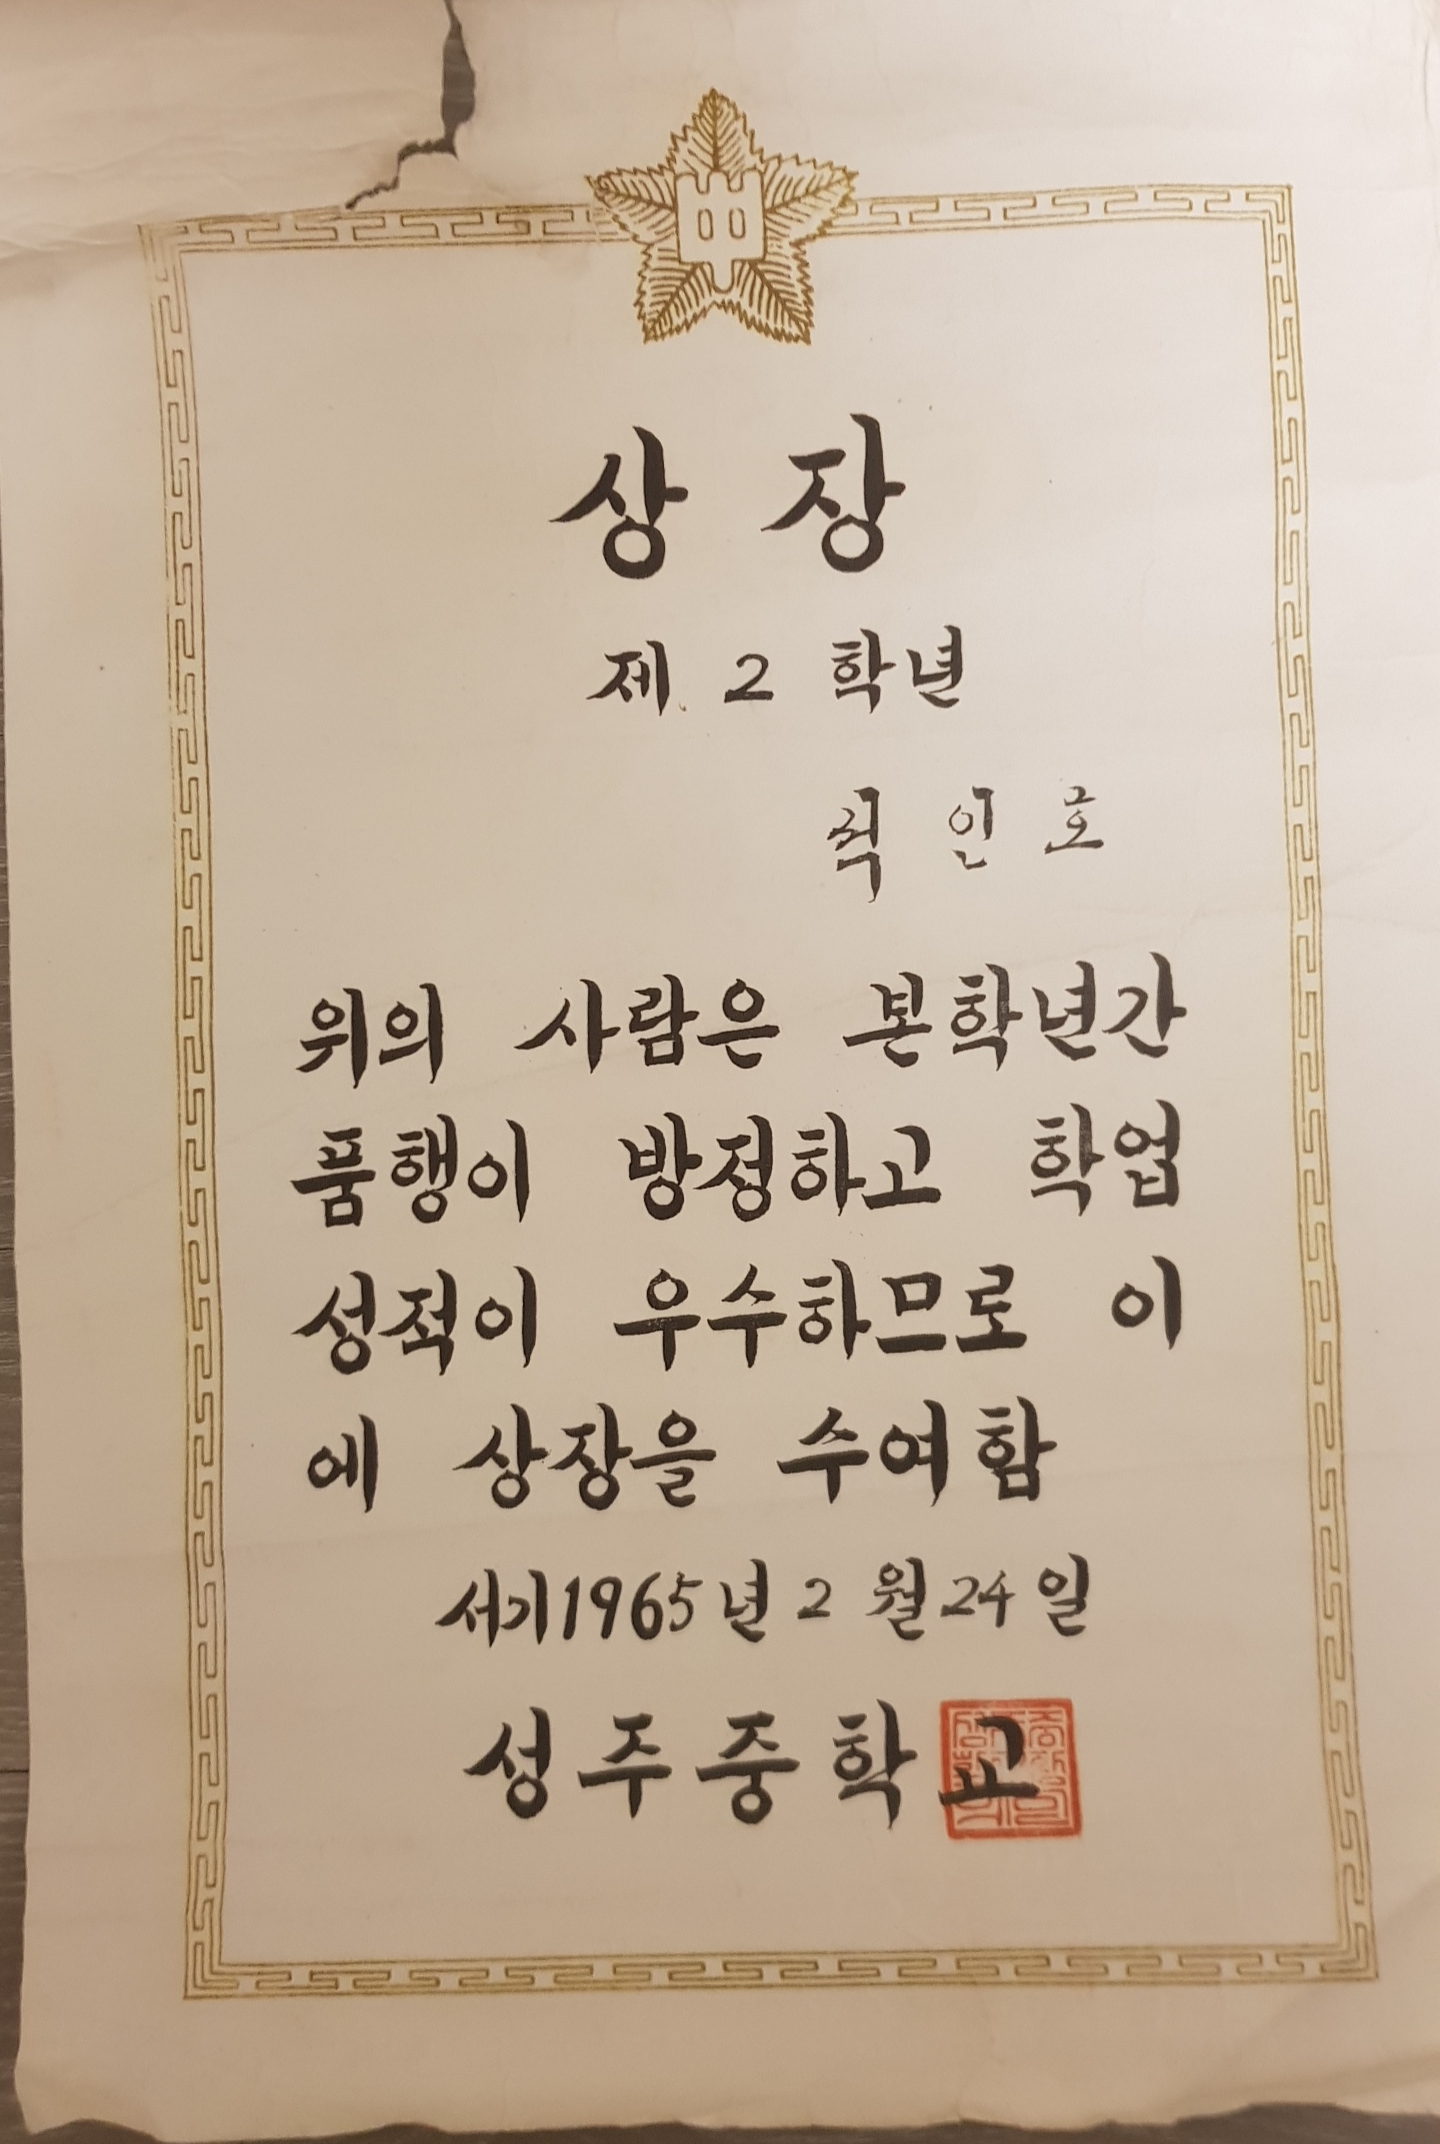 상 장
제 2 학년
석 인 호
위의 사람은 본학년간
품행이 방정하고 학업
성적이 우수하므로 이
에 상장을 수여함
서기1965년 2 월 24 일
성주중학교